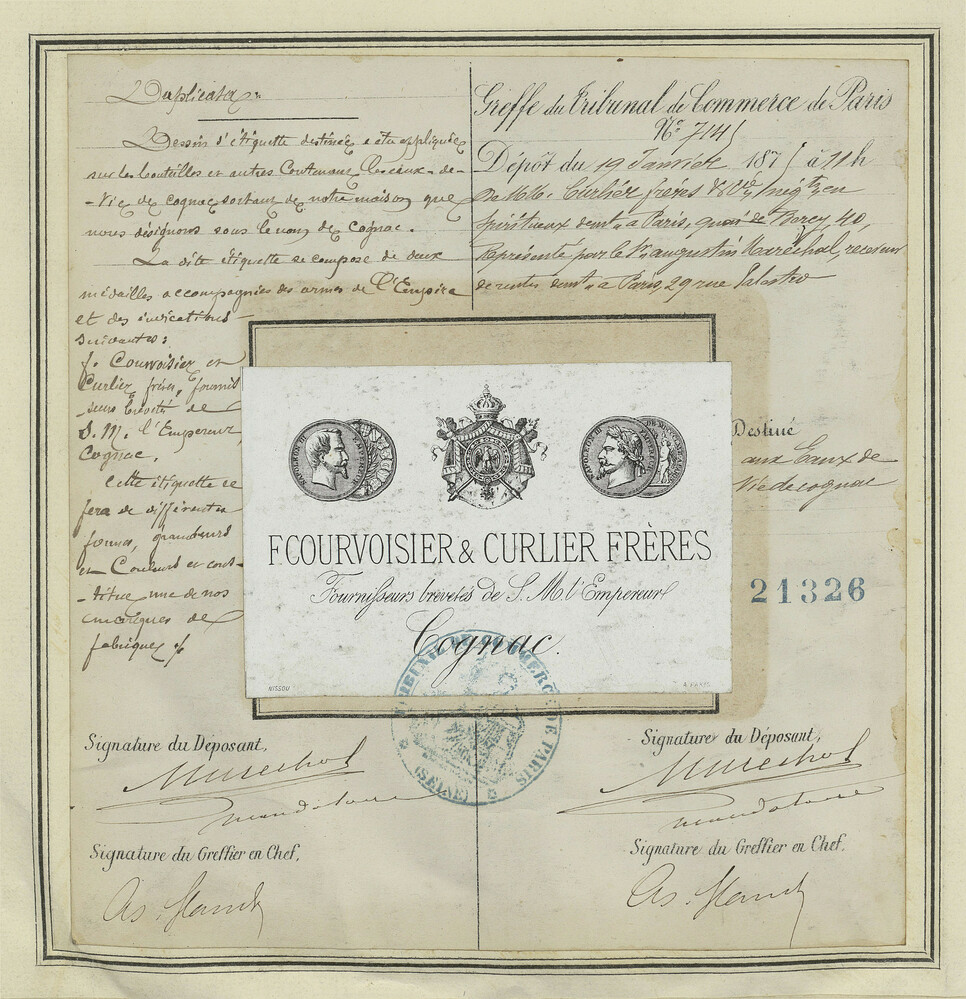 Duplicata
Dessin d'étiquette destinée a être appliquée
sur les bouteilles et autres Contenant les eaux-de-
-Vie de cognac sortant de notre maison que
nous désignons sous le nom de cognac.
La dite étiquette se compose de deux
médailles accompagnées des armes de l'Empire
et des indications
suivantes:
f. Courvoisier et
Curlier frères, fournis
-seurs brevetés de
S. M. l'Empereur,
Cognac.
Cette étiquette se
fera de différentes
formes, grandeurs
et Couleurs et cons-
-titue une de nos
marques de
fabriques
Greffe du Tribunal de Commerce de Paris
No 7145
Dépôt du 19 Janvier 1875 à 11h
De MM. Curlier frères & Cie, négts en
spiritueux demt à Paris, quai de Bercy, 40,
Représenté par le Sr augustin Maréchal, receveur
de rentes demt à Paris, 29 rue Palestro
Destiné
aux Eaux de
Vie de cognac
21326
NAPOLEON III EMPEREUR
NAPOLEON III EMPEREUR
F. COURVOISIER & CURLIER FRÈRES
Fournisseurs brevetés de S. M. l'Empereur
Cognac.
NISSOU
A PARIS
TRIBUNAL DE COMMERCE DE PARIS
(SEINE)
Signature du Déposant,
Marechal
mandataire
Signature du Greffier en Chef,
Signature du Déposant,
Marechal
mandataire
Signature du Greffier en Chef,